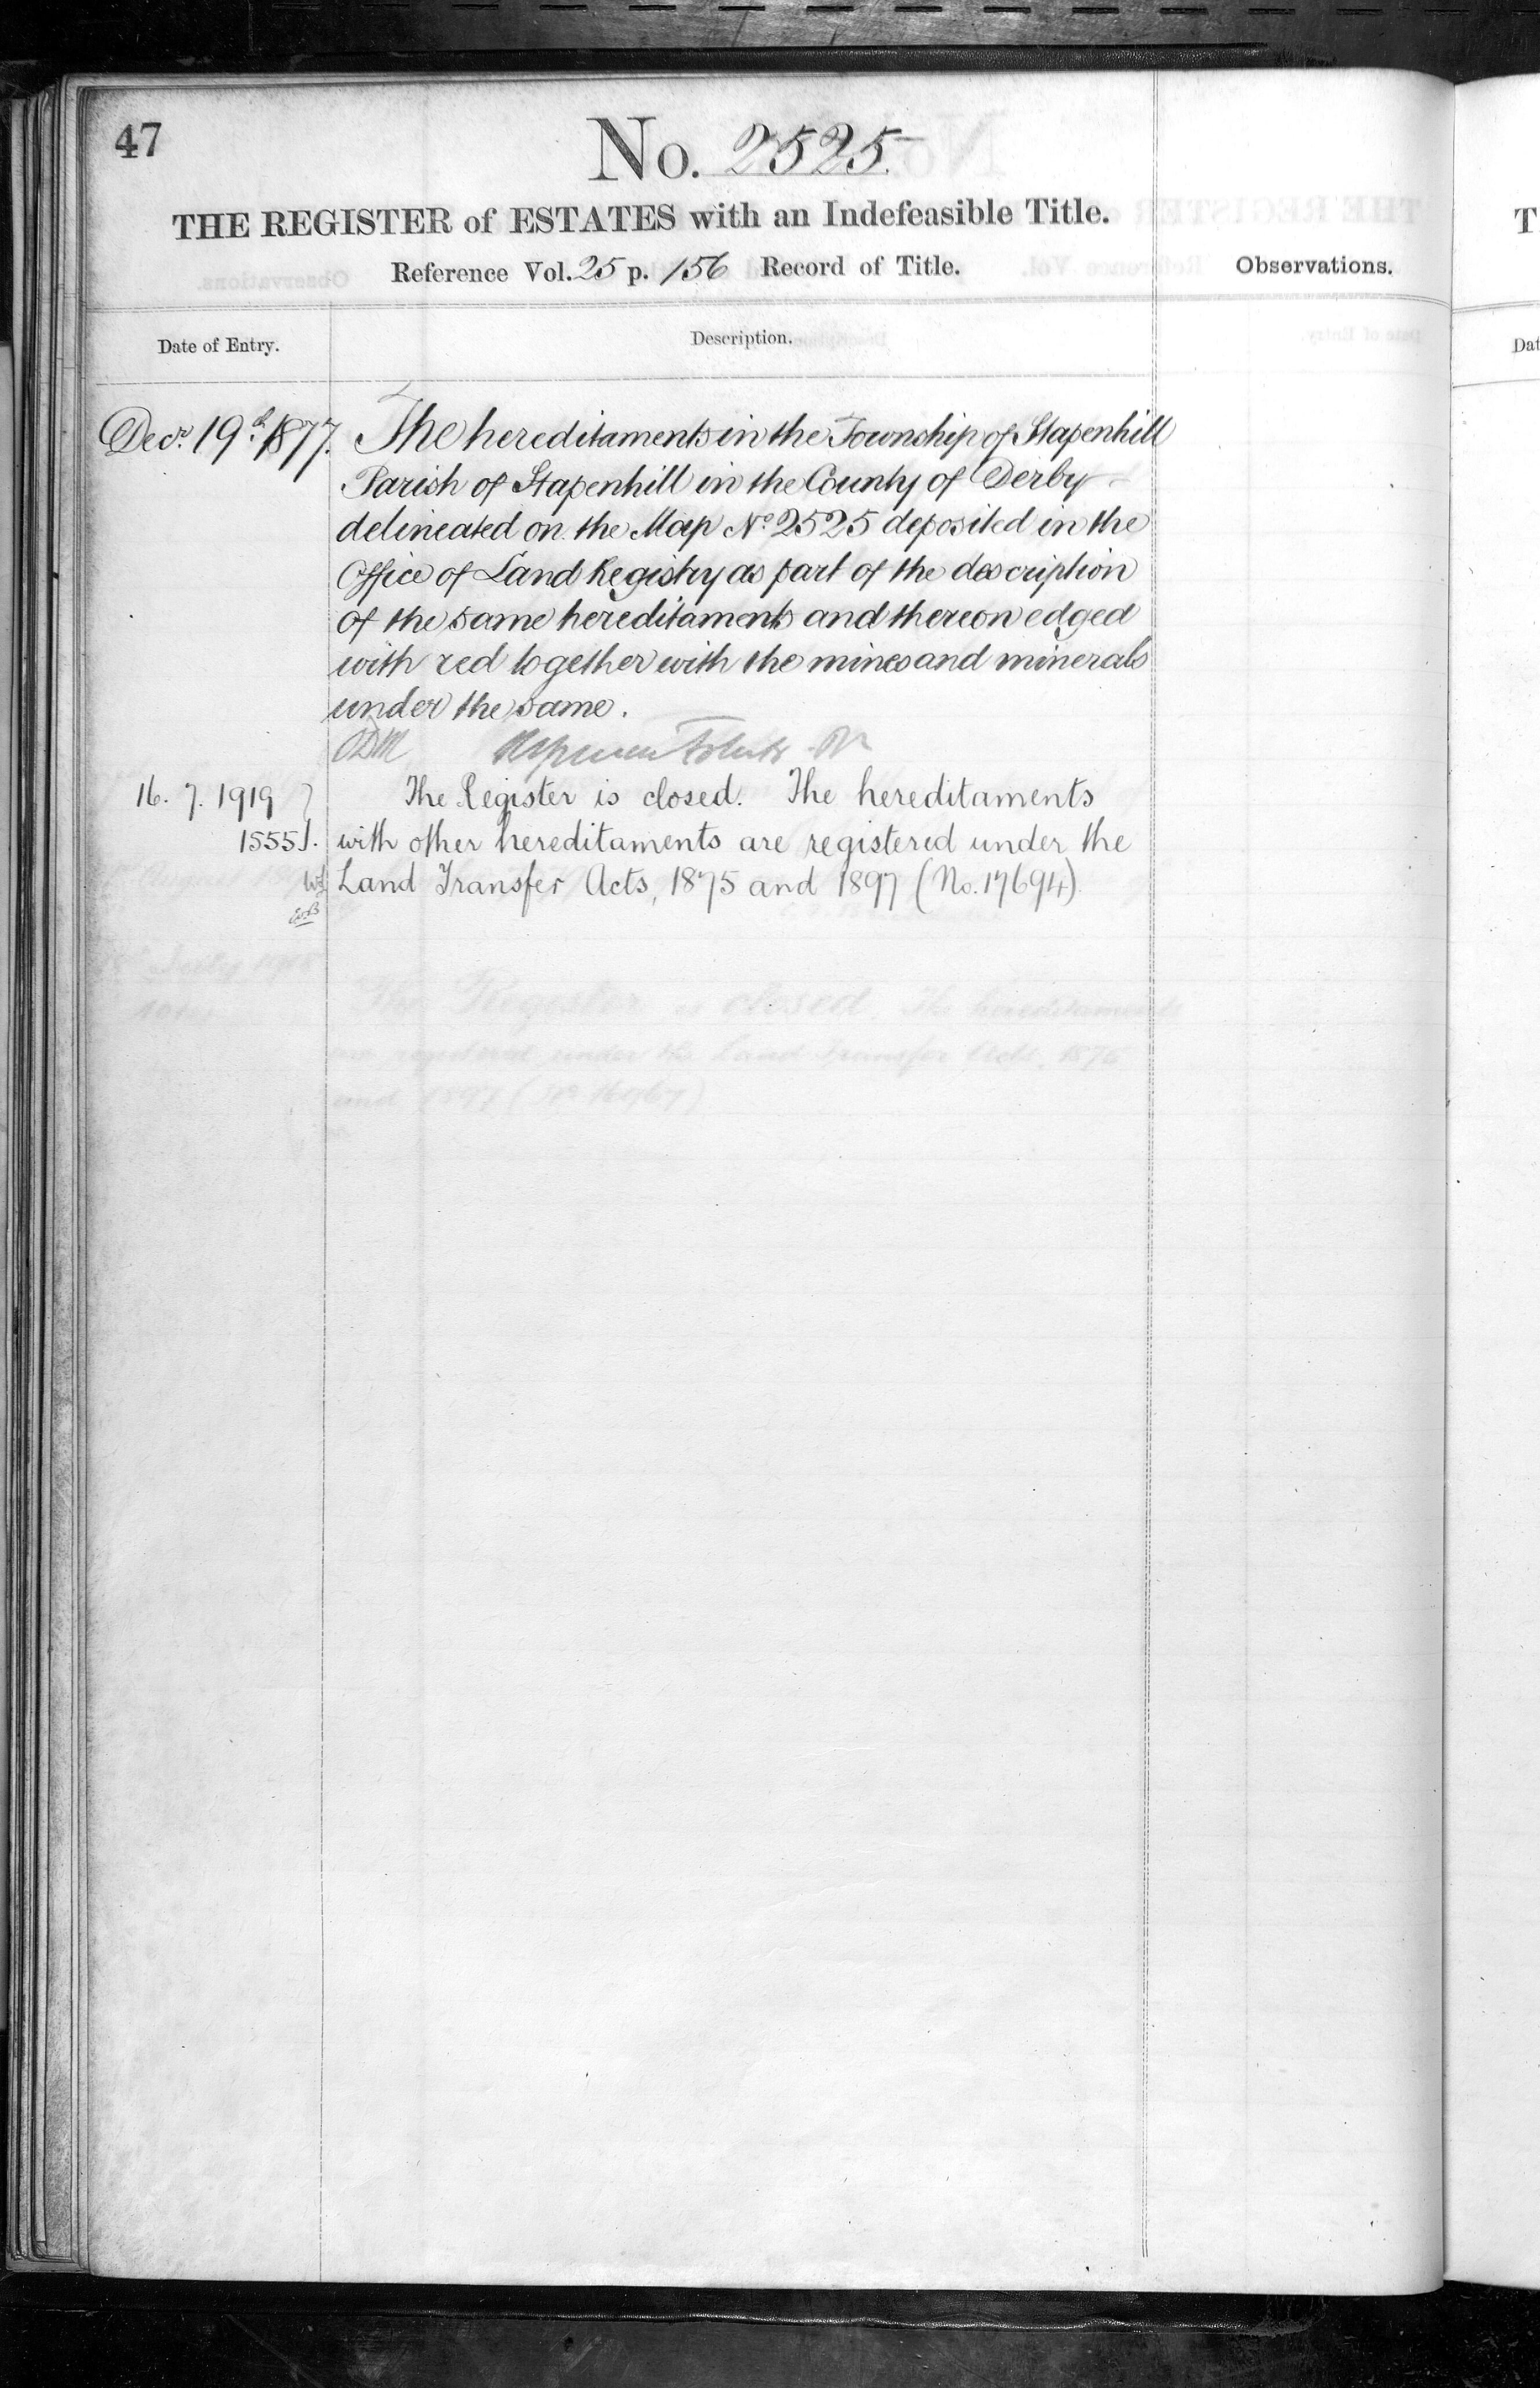 47
No. 2525.
THE REGISTER of ESTATES with an Indefeasible Title.
Reference Vol. 25 p. 156 Record of Title.
Observations.
Date of Entry.
Description.
Decr. 19th 1877. The hereditaments in the Township of Stapenhill
Parish of Stapenhill in the County of Derby
delineated on the Map No. 2525 deposited in the
Office of Land Registry as part of the description
of the same hereditaments and thereon edged
with red together with the mines and minerals
under the same.
16. 7. 1919 The Register is closed. The hereditaments
1555 with other hereditaments are registered under the
Land Transfer Acts, 1875 and 1897 (No. 17694).
The Register is closed. The hereditaments
are registered under the Land Transfer Acts, 1875
and 1897
T
Dat